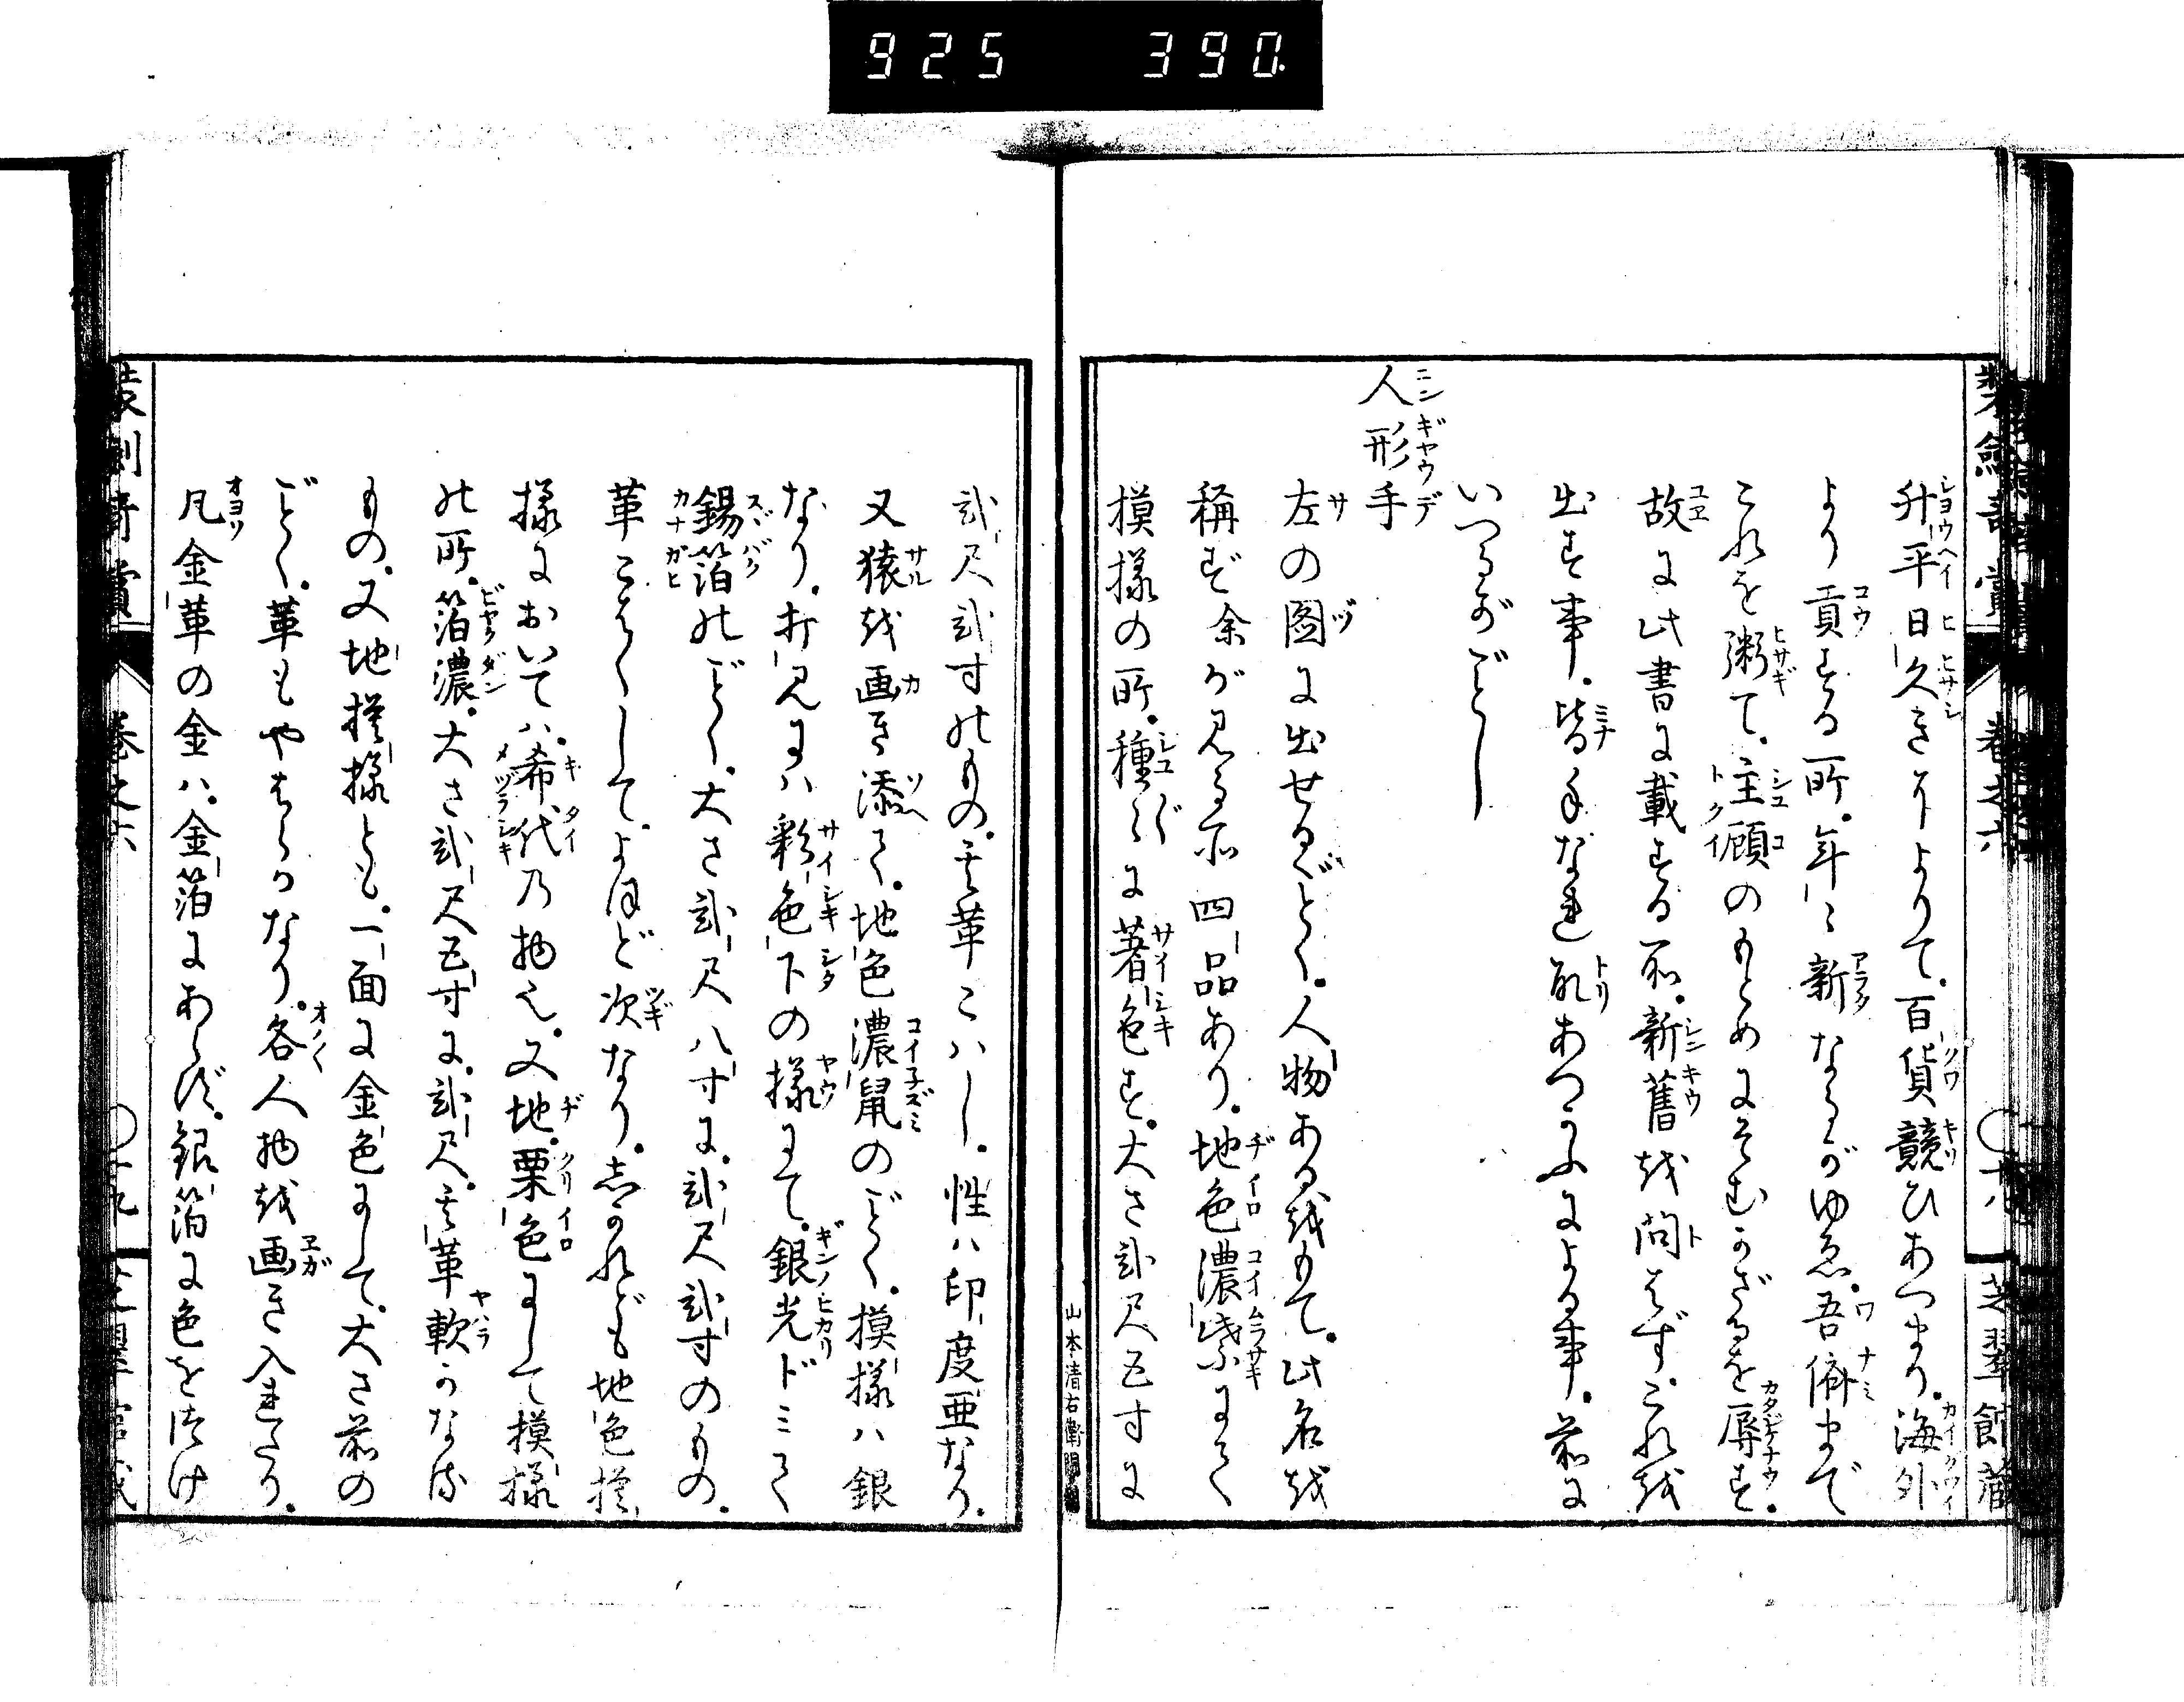 925 390
装劔竒賞 卷之六 〇十八 芝翠館藏
升平日久きによりて。百貨競ひあつまり。海外
より貢する所。年〻新ならざるがゆゑ。吾儕まで
これを粥て。主顧のもとめにそむかざるを辱す。
故に此書に載する所。新舊越問はず。これ越
出す事。皆手なれ取あつかふによる事。前に
いへるがごとし
人形手
左の圖に出せるごとく。人物ある越もて。此名越
稱ず余が見る所四品あり。地色濃紫にて
摸様の所。種〻に著色す。大さ弐尺五寸に
山本清右衛門
弐尺弐寸のもの。其革こハし。性ハ印度亜なり。
又猿越画き添て。地色濃鼠のごとく。摸様ハ銀
なり。打見にハ彩色下の様にて。銀光ドミて
錫箔のごとく。大さ弐尺八寸に。弐尺弐寸のもの。
革こはくして。よほど次なり。しかれども地色摸
様においてハ。希代の物也。又地。栗色にして摸様
の所。箔濃。大さ弐尺五寸に。弐尺。其革軟かなる
もの。又地摸様とも。一面に金色にして。大さ前の
ごとく。革もやはらかなり。各人物越画き入れたり。
凡金革の金ハ。金箔にあらず。銀箔に色をつけ
装劔竒賞 卷之六 〇十九 芝翠館藏